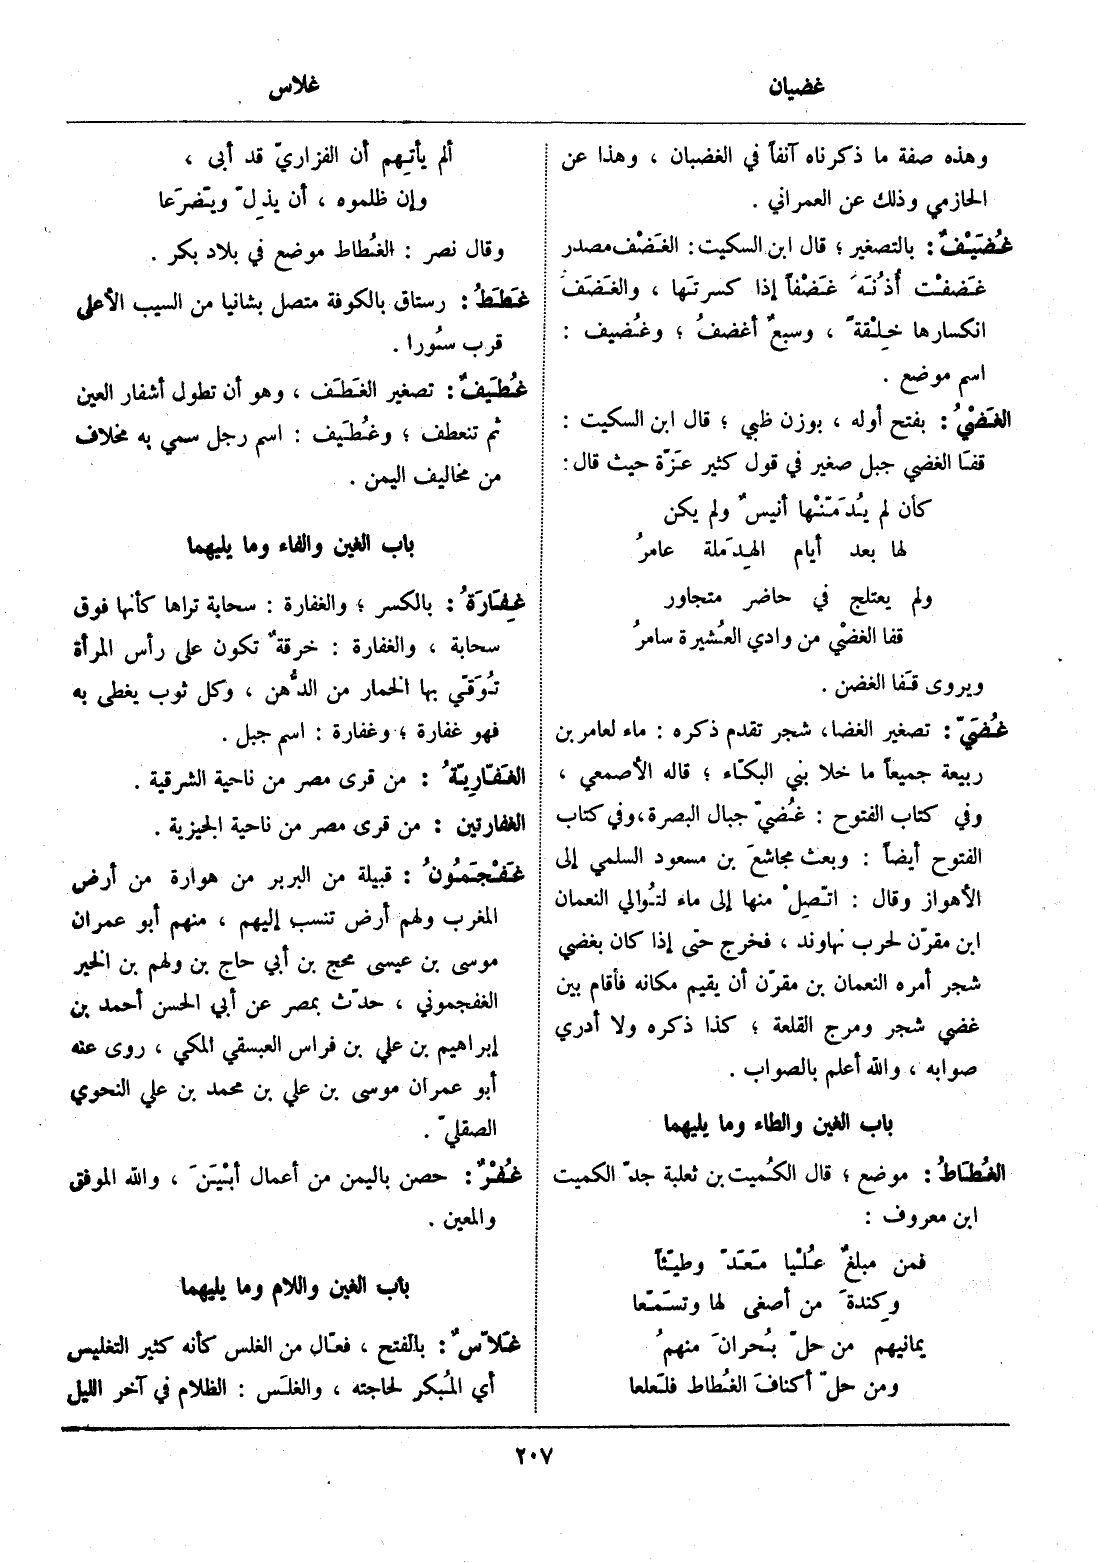 غضيان
غلاس
وهذه صفة ما ذكرناه آنفاً في الغضبان ، وهذا عن
الحازمي وذلك عن العمراني .
غُضَيْفٌ : بالتصغير ؛ قال ابن السكيت : الغَضْف مصدر
غَضفْت أُذُنَهَ غَضْفاً إذا كسرتَها ، والغَضَفَ
انكسارها خِلْقةً ، وسبعٌ أغضفُ ؛ وغُضيف :
اسم موضع .
الغَضْيُ : بفتح أوله ، بوزن ظبي ؛ قال ابن السكيت :
قفَا الغضي جبل صغير في قول كثير عَزّة حيث قال :
كأن لم يُدَمّنْها أنيسٌ ولم يكن
لها بعد أيام الهِدَملة عامرُ
ولم يعتلج في حاضر متجاور
قفا الغضْي من وادي العُشيرة سامرُ
ويروى قَفا الغضن .
غُضَيّ : تصغير الغضا، شجر تقدم ذكره : ماء لعامر بن
ربيعة جميعاً ما خلا بني البكّاء ؛ قاله الأصمعي ،
وفي كتاب الفتوح : غُضيّ جبال البصرة، وفي كتاب
الفتوح أيضاً : وبعث مجاشعَ بن مسعود السلمي إلى
الأهواز وقال : اتّصِلْ منها إلى ماء لتُوالي النعمان
ابن مقرّن لحرب نهاوند ، فخرج حتى إذا كان بغضي
شجر أمره النعمان بن مقرّن أن يقيم مكانه فأقام بين
غضي شجر ومرج القلعة ؛ كذا ذكره ولا أدري
صوابه ، والله أعلم بالصواب .
باب الغين والطاء وما يليهما
الغُطَاطُ : موضع ؛ قال الكُميت بن ثعلبة جدّ الكميت
ابن معروف :
فمن مبلغٌ عُلْيا مَعَدّ وطيّئاً
وكِندةَ من أصغى لها وتسَمّعا
يمانيهم من حلّ بُحرانَ منهمُ
ومن حلّ أكنافَ الغُطاط فلَعلعا
ألم يأتهم أن الفزاريّ قد أبى ،
وإن ظلموه ، أن يذلّ ويتضرَعا
وقال نصر : الغُطاط موضع في بلاد بكر .
غَطَطُ : رستاق بالكوفة متصل بشانيا من السيب الأعلى
قرب سُورا .
غُطَيفٌ : تصغير الغَطَف ، وهو أن تطول أشفار العين
ثم تنعطف ؛ وغُطَيف : اسم رجل سمي به مخلاف
من مخاليف اليمن .
باب الغين والفاء وما يليهما
غِفَارَةُ : بالكسر ؛ والغفارة : سحابة تراها كأنها فوق
سحابة ، والغفارة : خرقةٌ تكون على رأس المرأة
تُوَقّي بها الخمار من الدُّهن ، وكل ثوب يغطى به
فهو غفارة ؛ وغفارة : اسم جبل .
الغَفّارِيّةُ : من قرى مصر من ناحية الشرقية .
الغفارتين : من قرى مصر من ناحية الجيزية .
غَفْجَمُونُ : قبيلة من البربر من هوارة من أرض
المغرب ولهم أرض تنسب إليهم ، منهم أبو عمران
موسى بن عيسى محج بن أبي حاج بن ولهم بن الخير
الغفجموني ، حدّث بمصر عن أبي الحسن أحمد بن
إبراهيم بن علي بن فراس العبسقي المكي ، روى عنه
أبو عمران موسى بن علي بن محمد بن علي النحوي
الصقليّ .
غُفْرٌ : حصن باليمن من أعمال أبْيَنَ ، والله الموفق
والمعين .
باب الغين واللام وما يليهما
غَلاّسٌ : بالفتح ، فعّال من الغلس كأنه كثير التغليس
أي المُبكر لحاجته ، والغلَس : الظلام في آخر الليل
٢٠٧